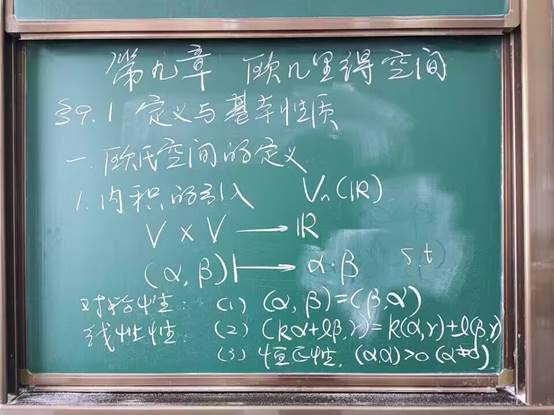 第九章 欧几里得空间
§9.1 定义与基本性质
一.欧氏空间的定义
1.内积的引入 Vₙ(ℝ)
V × V → ℝ
(α, β) ↦ α·β s,t
对称性: (1) (α, β)=(β,α)
线性性: (2) (kα+lβ,γ)=k(α,γ)+l(β,γ)
(3) 恒正性. (α,α)>0 (α≠0)